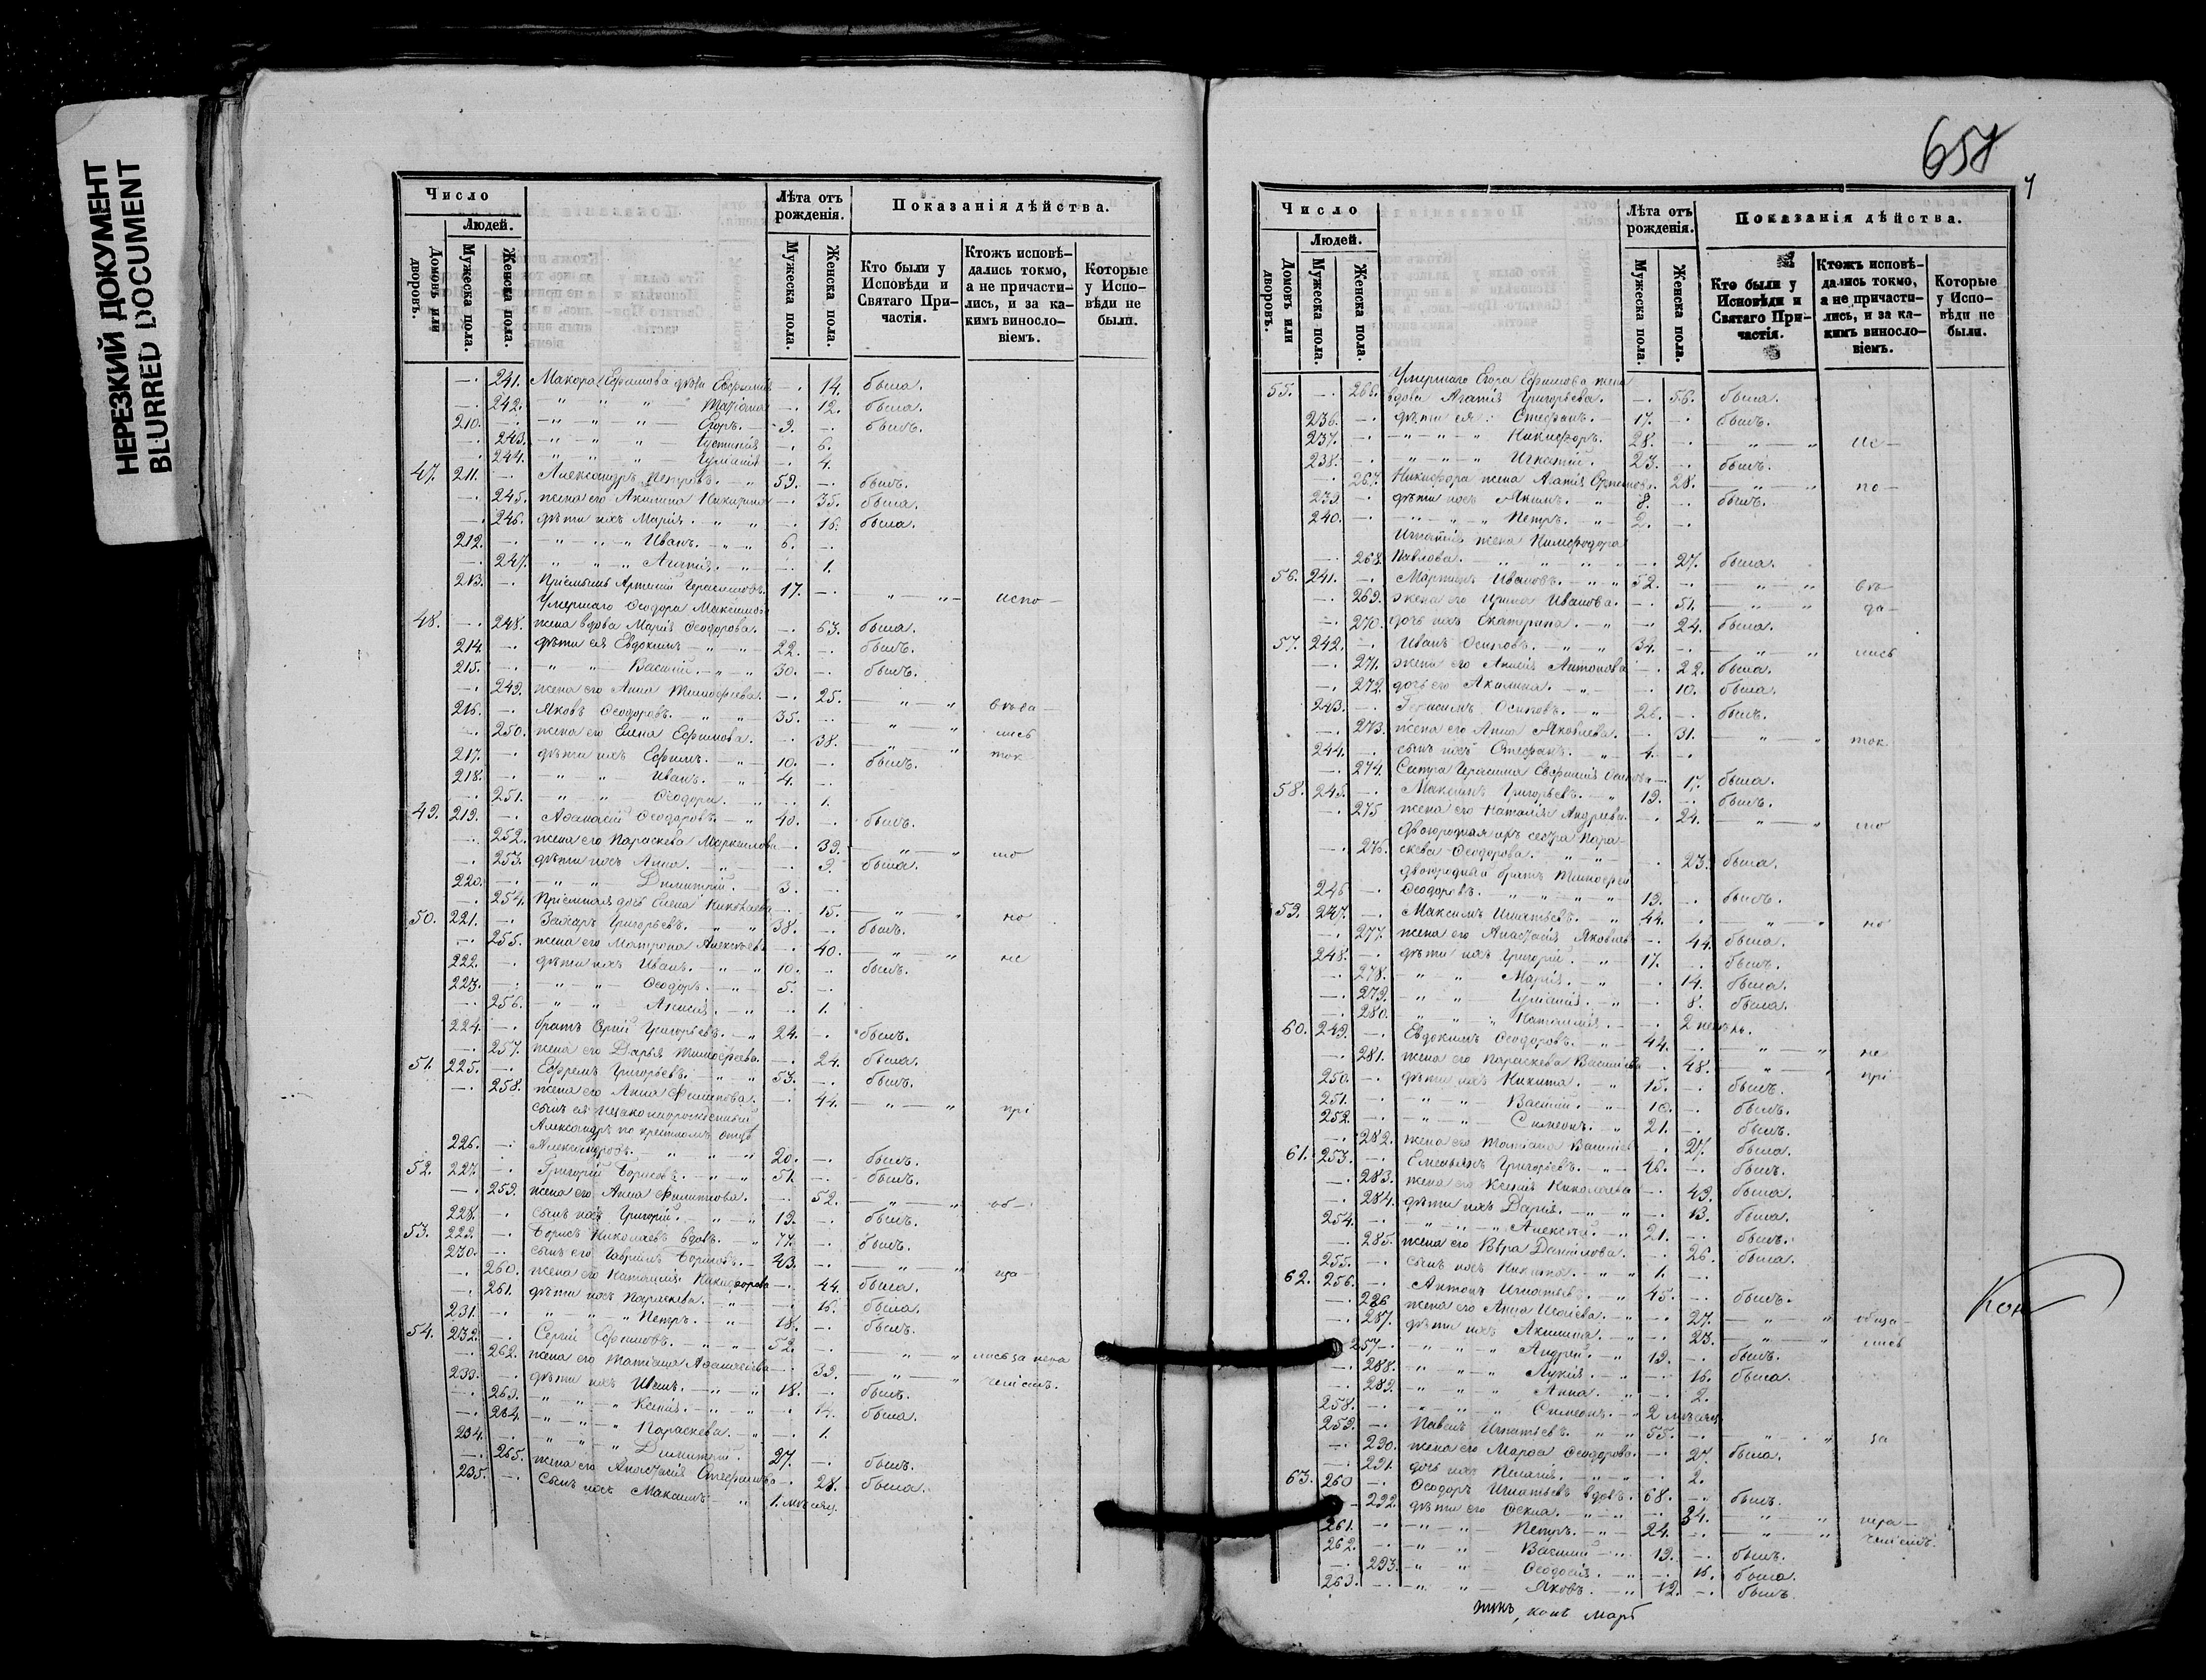 НЕРЕЗКИЙ ДОКУМЕНТ
BLURRED DOCUMENT
Число
Людей.
Домовъ или дворовъ.
Мужеска пола.
Женска пола.
Лѣта отъ рожденія.
Мужеска пола.
Женска пола.
Показанія дѣйства.
Кто были у Исповѣди и Святаго При-частія.
Ктожъ исповѣ-дались токмо, а не причасти-лись, и за ка-кимъ виносло-віемъ.
Которые у Испо-вѣди не были.
—. 241. Ефимова дѣти —. 14. была.
—. 242. — " " " " —. 12. была.
210. —. — " " " — Егоръ. — 9. —. былъ.
—. 243. — " " " — —. 6.
—. 244. — " " " — —. 4.
47. 211. —. Александръ Петровъ. — " 59. —. былъ.
—. 245. жена его Акилина —. 35. была.
—. 246. дѣти ихъ Марія. — " " —. 16. была.
212. —. — " " " Иванъ. — " " 6. —.
—. 247. — " " " Агафія. — " —. 1.
213. —. Пріемышъ Артемій Герасимовъ. 17. —. — " — " — испо—
Умершаго Ѳеодора Максимова
48. —. 248. жена вдова Марія Ѳеодорова. —. 63. была.
214. —. дѣти ея Евдокимъ — " — 22. —. былъ.
215. —. — " " — Василій. — " — 30. —. былъ.
—. 249. жена его Анна Тимофеева. —. 25. — " — " вѣда—
216. —. Яковъ Ѳеодоровъ. — " " — 35. —. — " — " лись
—. 250. жена его Елена Ефимова. —. 38. — " — " ток
217. —. дѣти ихъ Ефимъ. — " 10. —. былъ.
218. —. — " — " Иванъ. — " 4. —.
—. 251. — " " Ѳеодора. — " —. 1.
49. 219. —. Аѳанасій Ѳеодоровъ. — " 40. —. былъ.
—. 252. жена его Параскева —. 39. — " — " мо
—. 253. дѣти ихъ Анна. — " —. 9. была.
220. —. — " — " Димитрій. — 3. —.
—. 254. Пріемная дочь Елена Николаева —. 15. — " — " но
50. 221. —. Захаръ Григорьевъ. " " 38. —. былъ.
—. 255. жена его Матрона Алексѣева —. 40. — " — " не
222. —. дѣти ихъ Иванъ. — " — " 10. —. былъ.
223. —. — " — " — Ѳеодоръ. — " — 5. —.
—. 256. — " — " — Анисія. — " —. 1.
224. —. братъ Григорьевъ. — " 24. —. былъ.
—. 257. жена его Дарья Тимофеева. —. 24. была.
51. 225. —. Ефремъ Григорьевъ. — " — " 53. —. былъ.
—. 258. жена его Анна Филипова. —. 44. — " — " прі
сынъ ея незаконнорожденный
Александръ по крестномъ отцѣ
226. —. Александровъ. — " — " — " 20. —. былъ.
52. 227. —. Григорій Борисовъ. — " — " 51. —. былъ.
—. 259. жена его Анна Филиппова. —. 52. — " — " об—
228. —. сынъ ихъ Григорій. — " — " 19. —. былъ.
53. 229. —. Борисъ Николаевъ вдовъ. — " 77. —. былъ.
230. —. сынъ его Гавріилъ Борисовъ. — 43. —. — " — "
—. 260. жена его Наталія Никифорова —. 44. была.
—. 261. дѣти ихъ Параскева. — " —. 16. была.
231. —. — " — " — " Петръ. — " — 18. —. былъ.
54. 232. —. Сергій Ефимовъ. — " — " 52. —. — " — "
—. 262. жена его Татіана Аѳанасіева —. 39. — " — "
233. —. дѣти ихъ Иванъ. — " — " 18. —. былъ.
—. 263. — " — " — Ксенія. — " — " —. 14. была.
—. 264. — " — " — Параскева. — " —. 1.
234. —. — " — " — " Димитрій. — 27. —. былъ.
—. 265. жена его Анастасія Стефанова —. 28. была.
235. —. сынъ ихъ Максимъ — " 1. мѣсяц.
658
Число
Людей.
Домовъ или дворовъ.
Мужеска пола.
Женска пола.
Лѣта отъ рожденія.
Мужеска пола.
Женска пола.
Показанія дѣйства.
Кто были у Исповѣди и Святаго При-частія.
Ктожъ исповѣ-дались токмо, а не причасти-лись, и за ка-кимъ виносло-віемъ.
Которые у Испо-вѣди не были.
Умершаго Егора Ефимова жена
55. —. 266. вдова Агафія Григорьева. —. 56. была.
236. —. дѣти ея: Стефанъ. — 17. —. былъ.
237. —. — " — " — " Никифоръ. 28. —. — " — " ис—
238. —. — " — " — " Игнатій. 23. —. былъ.
—. 267. Никифора жена Агафія —. 28. — " — " по—
239. —. дѣти ихъ Акимъ. — " 8. —. былъ.
240. —. — " — " — " Петръ. — " 2. —.
Игнатія жена Нимфодора
—. 268. Павлова. — " " " " —. 27. была.
56. 241. —. Мартинъ Ивановъ. — " " 52. —. — " — " вѣ—
—. 269. жена его Ирина Иванова. —. 51. — " — " да—
—. 270. дочь ихъ Екатерина. — " —. 24. была.
57. 242. —. Иванъ Осиповъ. — " — " 34. —. — " — " лись
—. 271. жена его Анисія Антонова —. 22. была.
—. 272. дочь его Акилина. — " —. 10. была.
243. —. Герасимъ Осиповъ. — " 26. —. былъ.
—. 273. жена его Анна Яковлева. —. 31. — " — " ток
244. —. сынъ ихъ Стефанъ. — " 4. —.
—. 274. Сестра Герасима Евфимія —. 17. была.
58. 245. —. Максимъ Григорьевъ. — " 19. —. былъ.
—. 275 жена его Наталія Андреева. —. 24. — " — " мо
Двоюродная ихъ сестра Пара-
—. 276. скева Ѳеодорова. — " — " —. 23. была.
двоюродный братъ Тимофей
246 —. Ѳеодоровъ. — " " " " 19. —. былъ.
59. 247. —. Максимъ Игнатьевъ. — " 44. —. — " — " но
—. 277. жена его Анастасія Яковлева —. 44. была.
248. —. дѣти ихъ Григорій. — " 17. —. былъ.
—. 278. — " — " Марія. — " —. 14. была.
—. 279. — " — " — " —. 8. была.
—. 280. — " — " Наталія. — —. 2
60. 249. —. Евдокимъ Ѳеодоровъ. — " 44. —. — " — " не
—. 281. жена его Параскева Васильева —. 48. — " — " прі
250. —. дѣти ихъ Никита. — " 15. —. былъ.
251. —. — " — " Василій. — " 10. —. былъ.
252. —. — " — " Симеонъ. — " 21. —. былъ.
—. 282. жена его Татіана —. 27. была.
61. 253. —. Емельянъ Григорьевъ. — " 46. —. былъ.
—. 283. жена его Ксенія Николаева —. 49. была.
—. 284. дѣти ихъ Дарія. — " — " —. 13. была.
254. —. — " — " — " Алексѣй. — " 21. —. былъ.
—. 285. жена его Вѣра Данилова. —. 26. была.
255. —. сынъ ихъ Никита. — " — " 1. —.
62. 256. —. Антонъ Игнатьевъ. — " 45. —. былъ.
—. 286 жена его Анна —. 27. — " — "
—. 287. дѣти ихъ Акилина. — " —. 23. — " — " лись
257 —. — " — " — " Андрей. — " 19. —. былъ.
—. 288. — " — " — " Лукія. — " —. 16. была.
—. 289. — " — " — " Анна. — " —. 2.
258. —. — " — " — " Симеонъ. — " 2 мѣсяц.
259. —. Павелъ Игнатьевъ. — " " 55. —. — " — " за
—. 290. жена его Марѳа Ѳеодорова. —. 27. была.
—. 291. дочь ихъ Пелагія. — " — " —. 2.
63. 260 —. Ѳеодоръ Игнатьевъ вдовъ. 68. —. былъ.
—. 292. дѣти его Ѳекла. — " — " —. 34. — " — " нера—
261. —. — " — " — Петръ. — " — 24. —. — " — "
262. —. — " — " — Василій — " — 19. —. былъ.
—. 293. — " — " — Ѳеодосія. — " —. 16. была.
263. —. — " — " — Яковъ. — " 12. —. былъ.